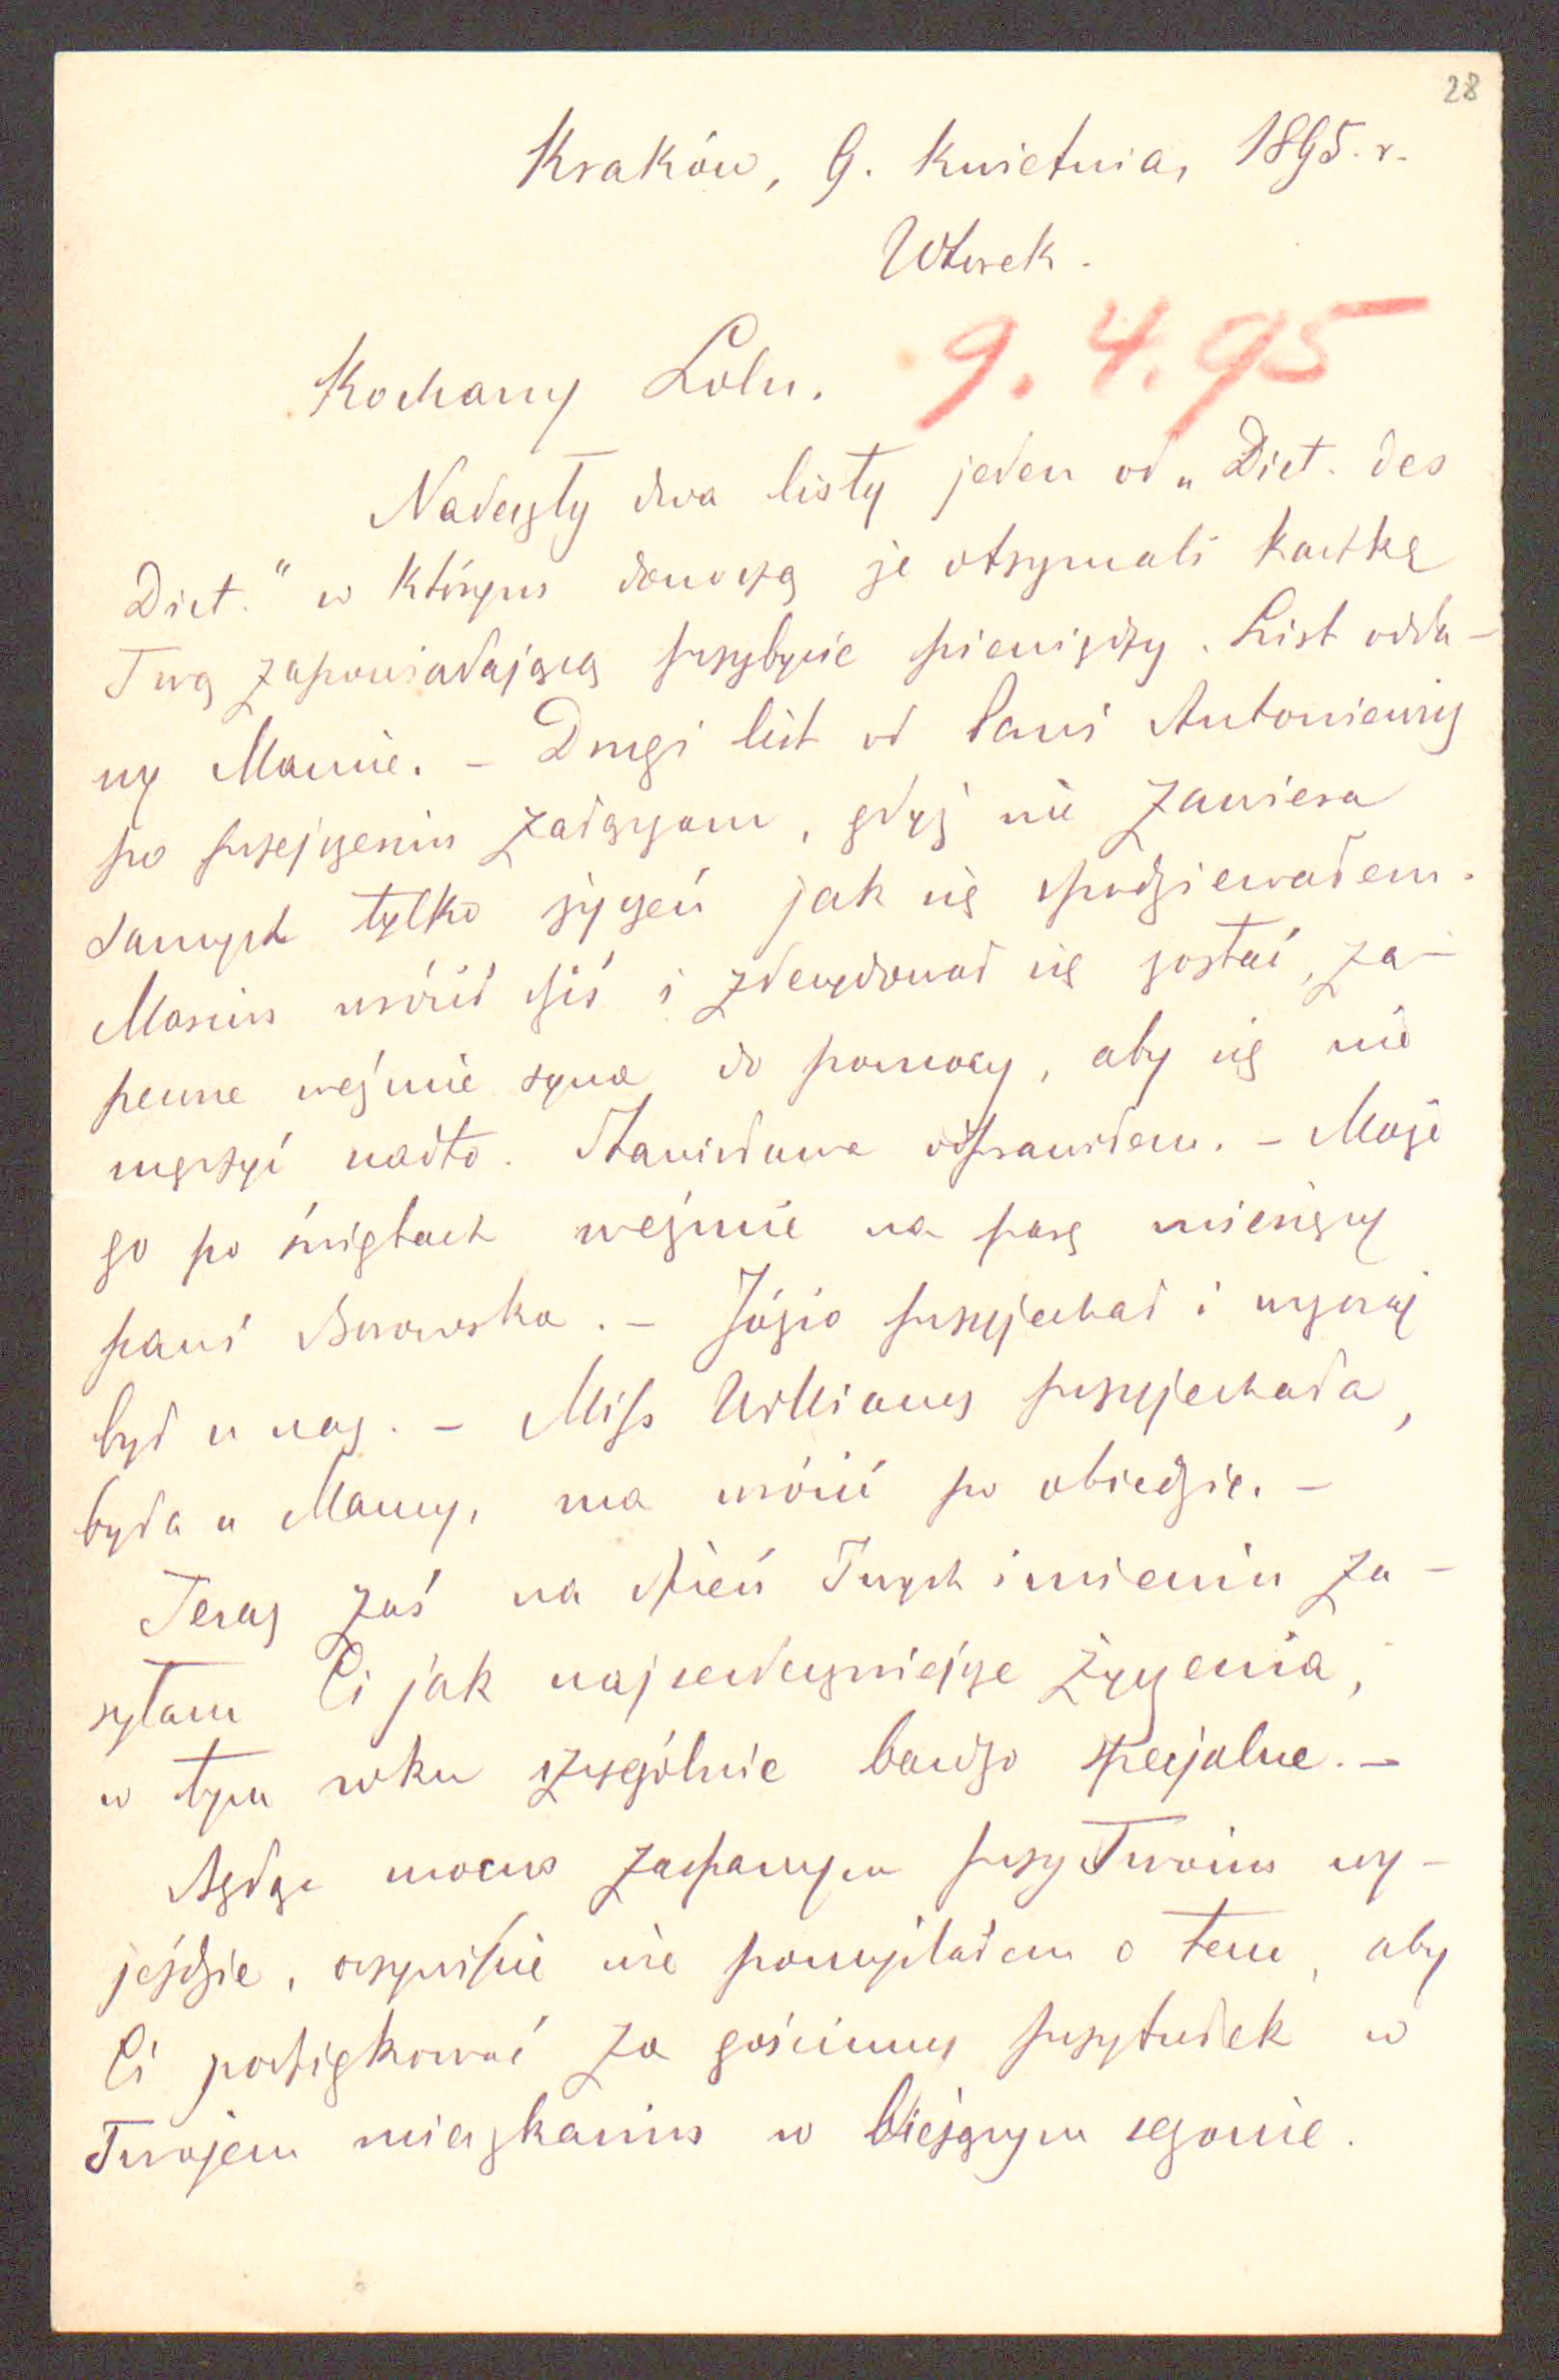 28
Kraków, 9. Kwietnia, 1895. r.
Wtorek.
9.4.95
Kochany Lolu.
Nadeszły dwa listy jeden od „Dict. des
Dict." w którym donoszą że otrzymali kartkę
Twą zapowiadającą przybycie pieniędzy. List odda-
ny Mamie. – Drugi list od Pani Antoniewicz
po przejrzeniu załączam, gdyż nie zawiera
samych tylko życzeń jak się spodziewałem.
Marcin wrócił dziś i zdecydował się zostać, za-
pewne weźmie syna do pomocy, aby się nie
męczyć nadto. Stanisława odprawiłem. – Może
go po świętach weźmie na parę miesięcy
pani Borowska. – Józio przyjechał i wczoraj
był u nas. – Miss Williams przyjechała,
była u Mamy, ma wrócić po obiedzie. –
Teraz zaś na dzień Twych imienin za-
syłam Ci jak najserdeczniejsze życzenia,
w tym roku szczególnie bardzo specjalne. –
Będąc mocno zaspanym przy Twoim wy-
jeździe, oczywiście nie pomyślałem o tem, aby
Ci podziękować za gościnny przytułek w
Twojem mieszkaniu w bieżącym sezonie.